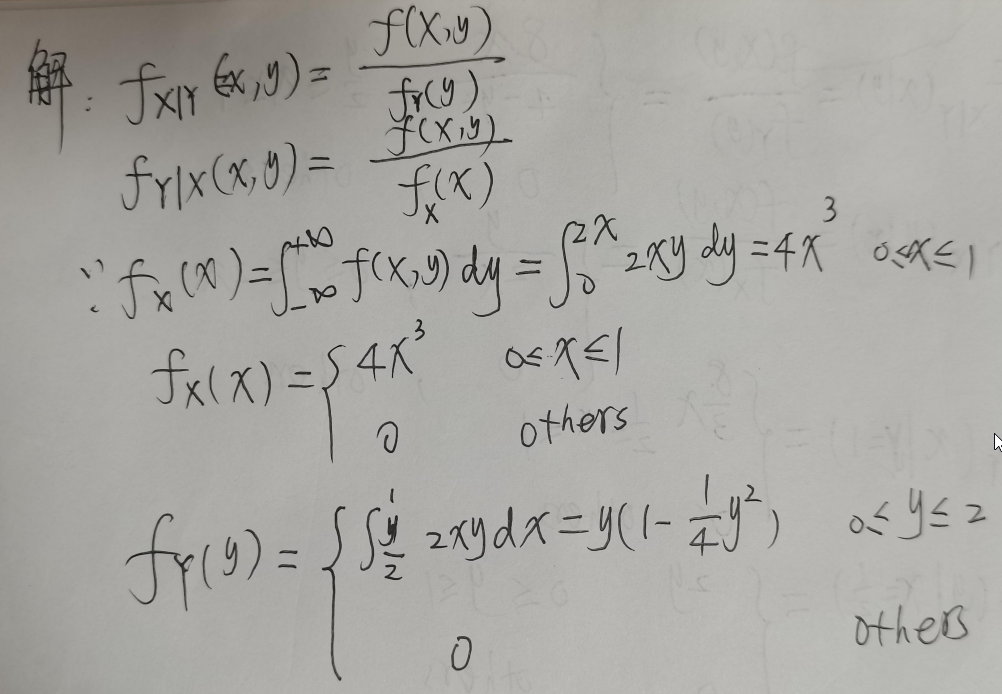 解: f_{X|Y}(x,y) = \frac{f(x,y)}{f_Y(y)}
f_{Y|X}(x,y) = \frac{f(x,y)}{f_X(x)}
∵ f_X(x) = ∫_{-∞}^{+∞} f(x,y) dy = ∫_0^{2x} 2xy dy = 4x^3 0≤x≤1
f_X(x) = { 4x^3 0≤x≤1
0 others
f_Y(y) = { ∫_{\frac{y}{2}}^1 2xy dx = y(1-\frac{1}{4}y^2) 0≤y≤2
0 others